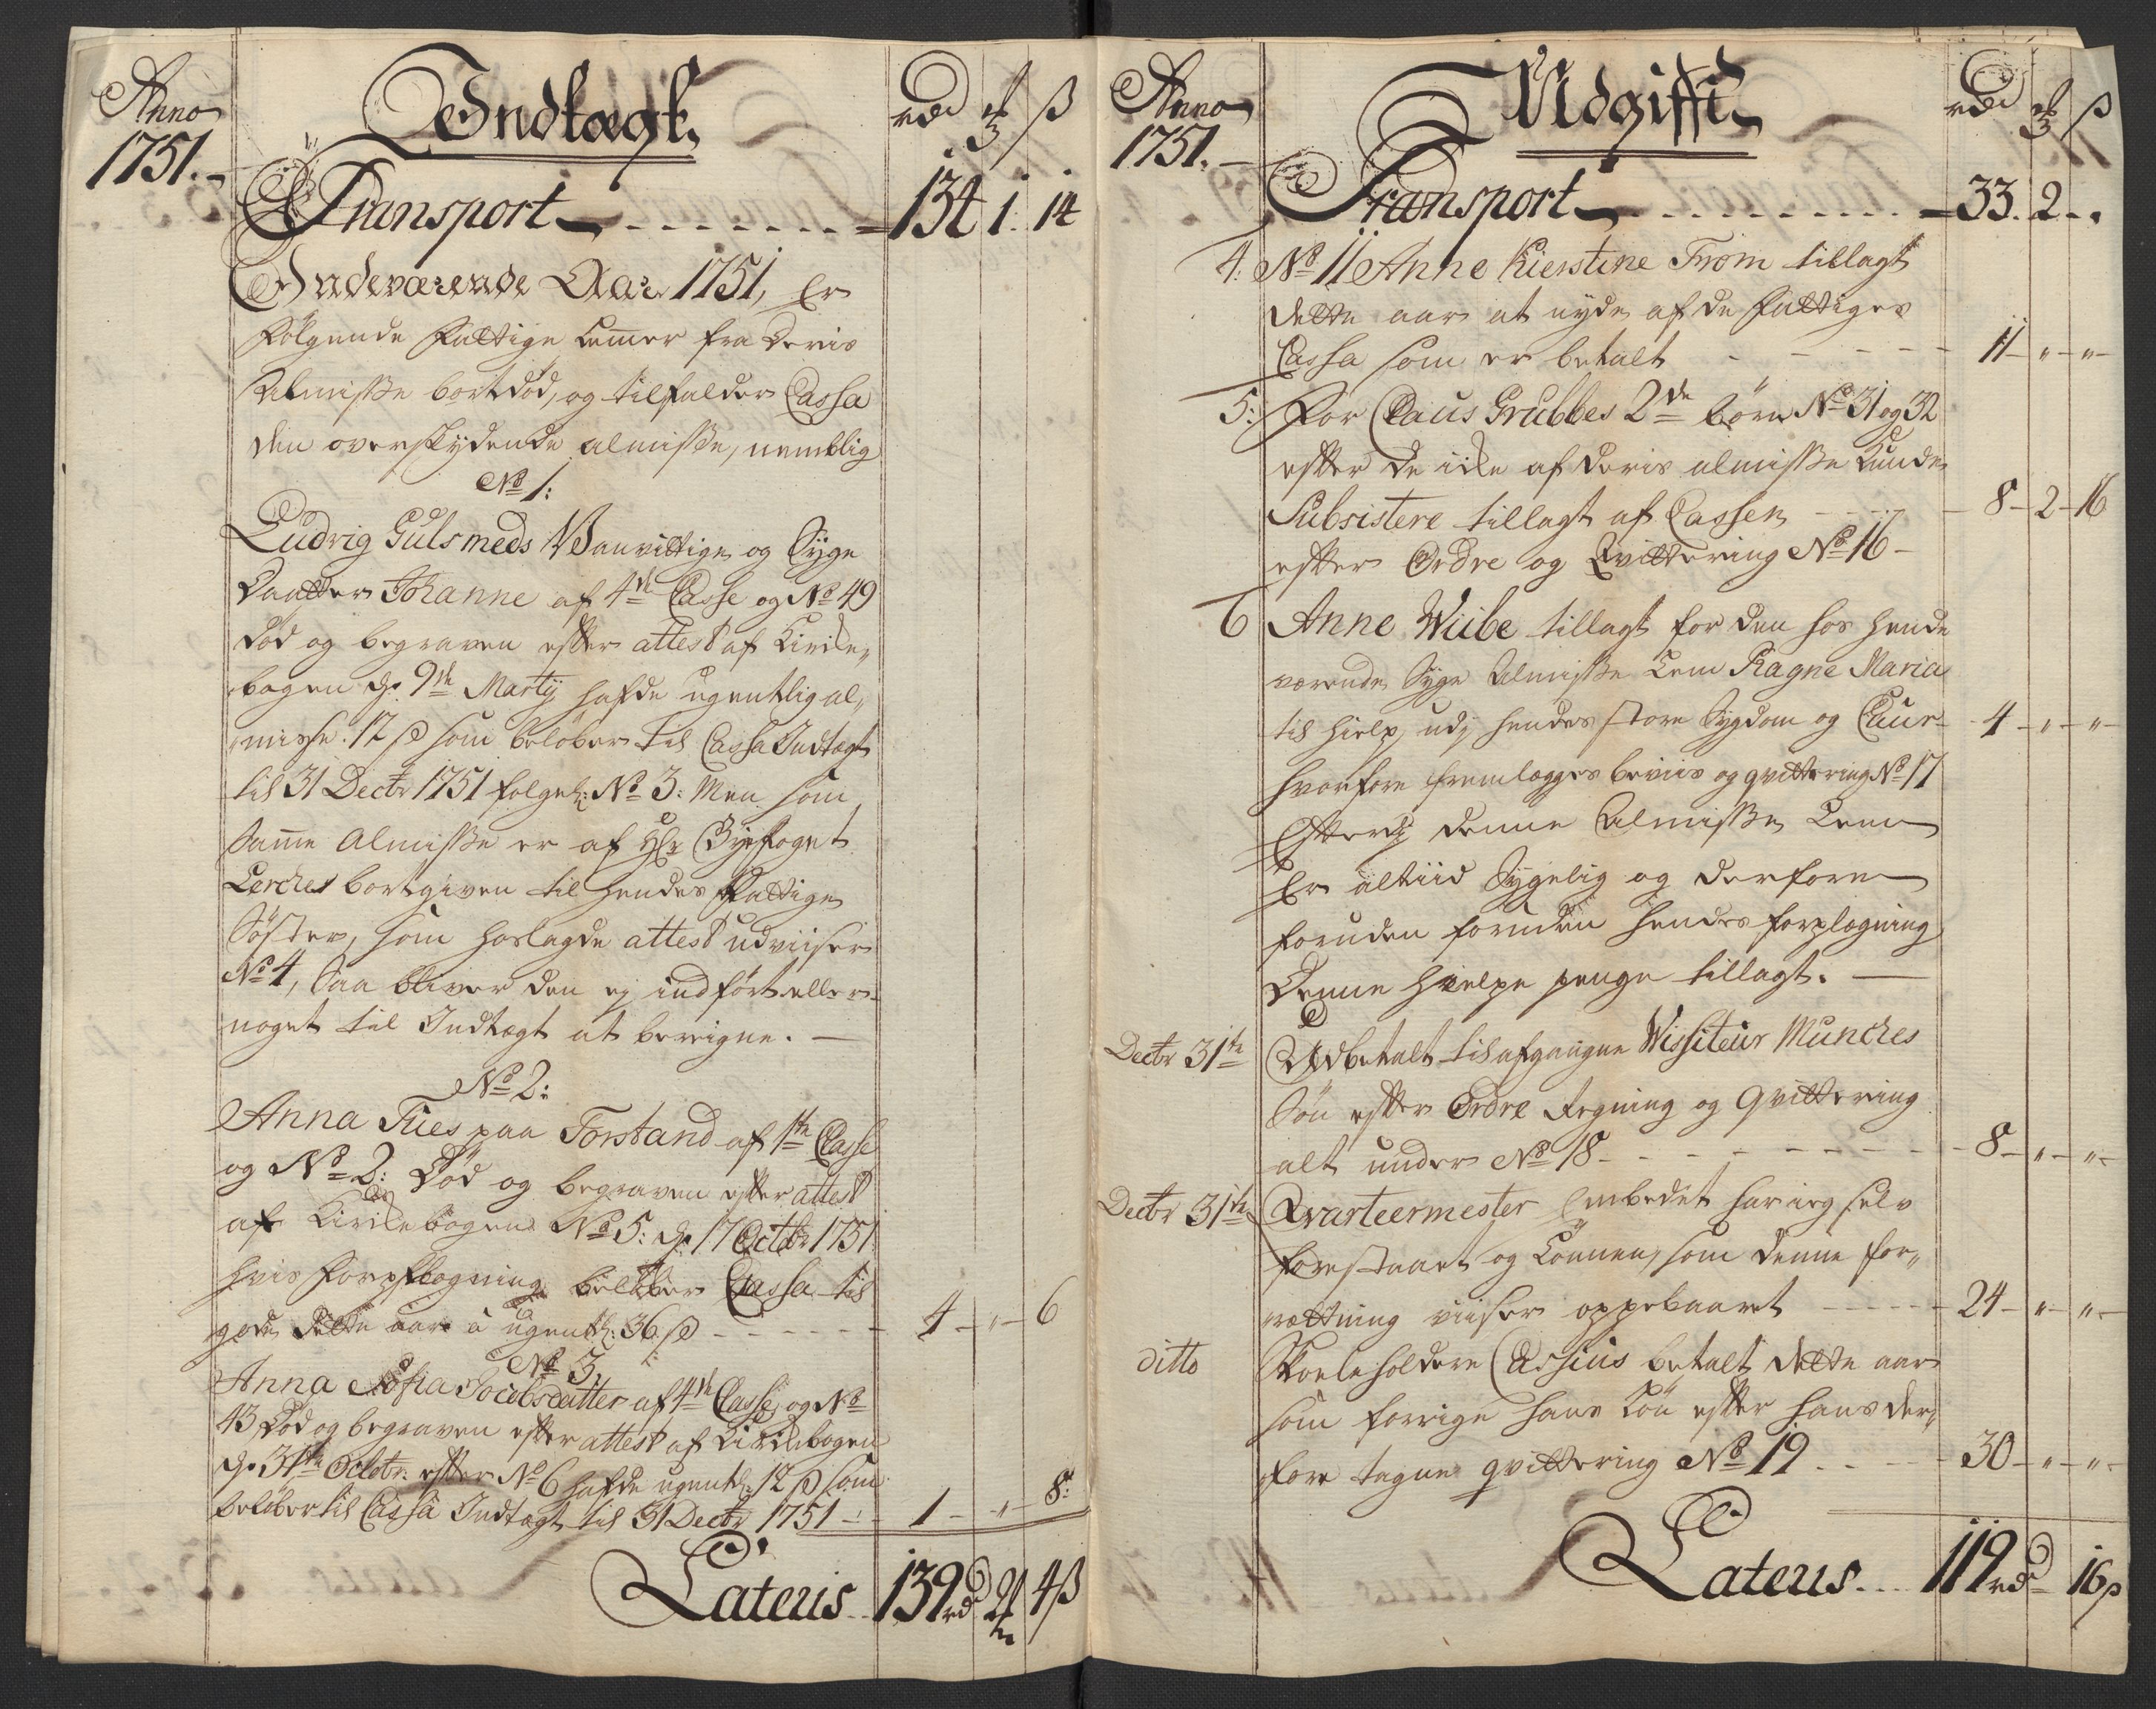 Anno
1751.
Indtægt.
rd ₰ ß
Transport 134 1. 14
Indeværende Aar 1751, Er
følgende Fattige Lemmer fra deris
Almisse bortdöd, og tilfalder Cassa
den overskydende almisse, nemblig
No 1:
Ludvig Gulsmeds Wanvittige og Syge
Daatter Johanne af 4de Classe og No 49
död og begraven efter attest af Kirke„
bogen d. 9de Martij hafde ugentlig al„
misse 12 ß som belöber til Cassa Indtægt
til 31 Dectr 1751 folgel: No 3: Men som
Samme Almisse er af Hr Byefoget
Lerches bortgiven til hendes Fattige
Söster, som hoslagde attest udviiser
No 4, Saa bliver den ej indfört eller
noget til Indtægt at beregne.
No 2:
Anna Tues paa Forstand af 1ste Classe
og No 2: Död og begraven efter attest
af Kirkebogen No 5: d. 17 Octbr 1751
hvis forpflegning belöber Cassa til
gode dette aar â ugentl: 36 ß 4 „ 6
No 3.
Anna Sofia Jacobsdatter af 4de Classe og No
43 Död og begraven efter attest af Kirkebogen
d. 31te Octobr: efter No 6 hafde ugentl: 12 ß som
belöber til Cassa Indtægt til 31 Dectr 1751 1 „ 8:
Lateris 139 rd 2 4 ß
Anno
1751.
Udgifft
rd ₰ ß
Transport 33. 2 „
4: No 11 Anne Kierstine From tillagt
dette aar at nyde af de Fattiges
Cassa som er betalt 11 „ „
5: For Claus Grubbes 2de börn No 31 og 32
efter de icke af deris almisse Kunde
Subsistere tillagt af Cassen 8 2 16
efter Ordre og Qvittering No 16
6 Anne Wiibe tillagt for den hos hende
værende Syge Almisse Lem Ragne Maria
til hielp udj hendes store Sygdom og Cuur 4 „ „
hvorfore fremlægges beviis og qvittering No 17
Efterdj denne Almisse Lem
Er altiid Sygelig og derfore
foruden foruden hendes forplegning
Denne hielpe penge tillagt.
Dectr 31te Udbetalt til afgangne Wissiteur Munches
Sön efter Ordre Regning og qvittering
alt under No 18 8 „ „
Dectr 31te Qvarteermester Embedet har ieg selv
forestaaet og Lönnen, som denne for„
rættning viiser oppebaaret 24 „ „
ditto Skoeleholdere Cassius betalt dette aar
som forrige hans Lön efter hans der„
fore tagne qvittering No 19 30 „ „
Laterus 119 rd 16 ß